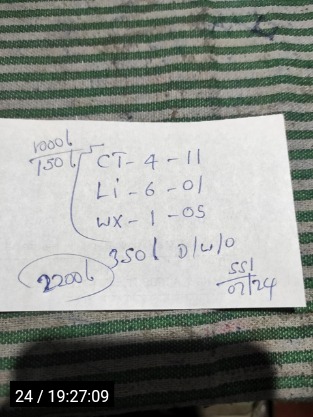 1000l
150l
CT - 4 - 11
Li - 6 - 01
WX - 1 - 05
350l D/W/O
2200l
SSI
02/24
24 / 19:27:09